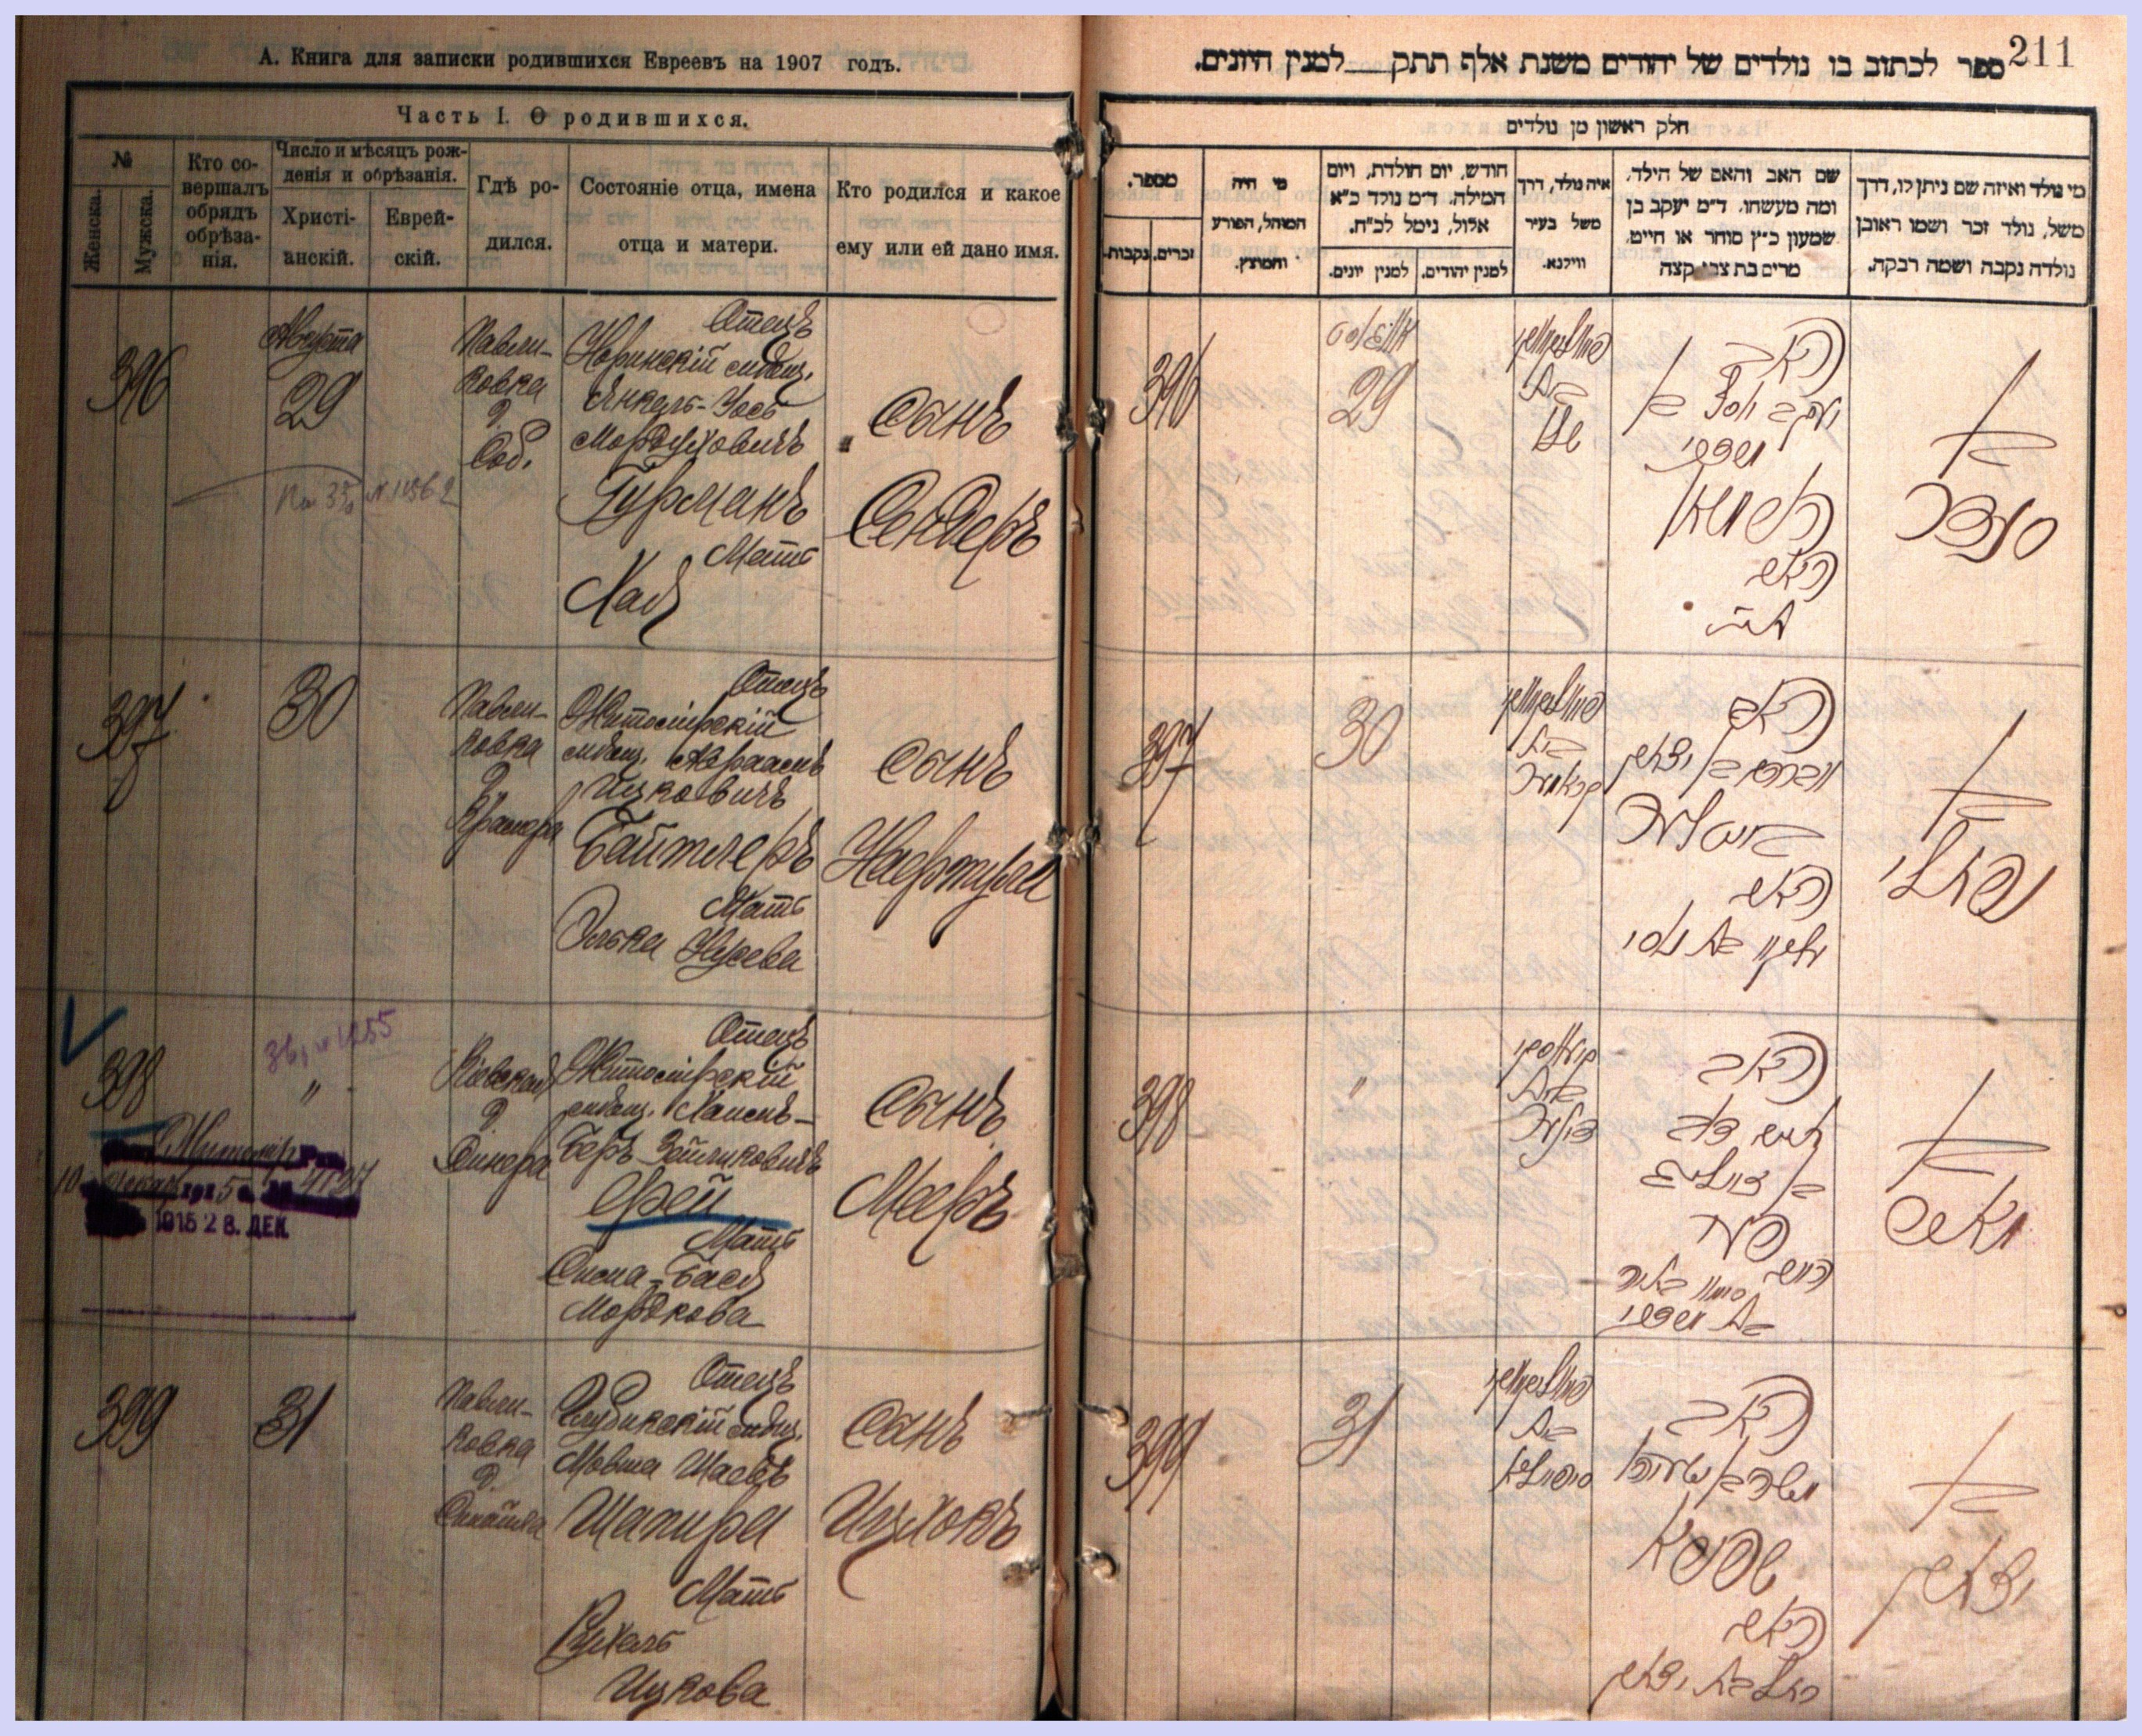 А. Книга для записки родившихся Евреевъ на 1907 годъ.
Часть I. О родившихся.
№
Женска.
Мужска.
Кто со-
вершалъ
обрядъ
обрѣза-
нія.
Число и мѣсяцъ рож-
денія и обрѣзанія.
Христі-
анскій.
Еврей-
скій.
Гдѣ ро-
дился.
Состояніе отца, имена
отца и матери.
Кто родился и какое
ему или ей дано имя.
396
Августа
29
Павли-
ковка
д.
Соб.
Отецъ
Норинскій мѣщ.
Янкель-Іось
Мордуховичъ
Гурманъ
Мать
Хая
Сынъ
Сендеръ
397
30
Павли-
ковка
д.
Крамера
Отецъ
Житомірскій
мѣщ. Абраамъ
Ицковичъ
Байтлеръ
Мать
Элька
Сынъ
Нафтули
398
"
Кіевская
д.
Отецъ
Житомірскій
мѣщ.
Беръ Зейликовичъ
Фрей
Мать
Сима-Бася
Мордкова
Сынъ
Мееръ
1915 28. ДЕК
399
31
Павли-
ковка
д.
Отецъ
мѣщ.
Мовша
Шапира
Мать
Рухель
Ицкова
Сынъ
Ицхокъ
211
ספר לכתוב בו נולדים של יהודים משנת אלף תתק למנין היונים.
חלק ראשון מן נולדים
מספר.
זכרים.
נקבות.
מי היה
המוהל, הפורע
והמוצץ.
חודש, יום הולדת, ויום
המילה. ד״מ נולד כ״א
אלול, נימל לכ״ח.
למנין יונים.
למנין יהודים.
איה נולד, דרך
משל בעיר
ווילנא.
שם האב והאם של הילד,
ומה מעשהו. ד״מ יעקב בן
שמעון כ״ץ סוחר או חייט,
מרים בת צבי קצה
מי נולד ואיזה שם ניתן לו, דרך
משל, נולד זכר ושמו ראובן
נולדה נקבה ושמה רבקה.
396
אווגוסט
29
האב
יעקב יוסף בן
האם
חיה
בן
סענדער
397
30
האב
אברהם בן יצחק
בייטלער
האם
בן
נפתלי
398
"
האב
חיים בער
בן
פריי
בן
מאיר
399
31
האב
שפירא
האם
רחל בת יצחק
בן
יצחק